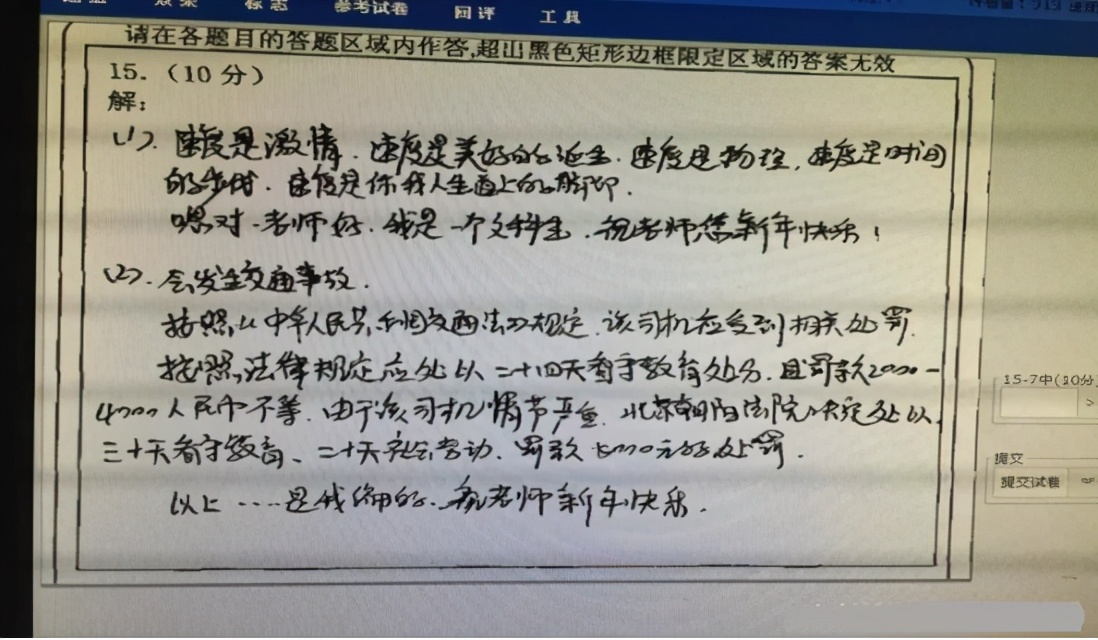 效果 标志 参考试卷 回评 工具
请在各题目的答题区域内作答,超出黑色矩形边框限定区域的答案无效
15.（10分）
解：
(1). 速度是激情. 速度是美好的诞生. 速度是物理, 速度是时间
的步伐. 速度是你我人生道上的脚印.
嗯对. 老师好. 我是一个文科生. 祝老师您新年快乐!
(2). 会发生交通事故.
按照《中华人民共和国交通法》规定. 该司机应受到相关处罚.
按照法律规定应处以二十四天看守教育处分. 且罚款2000-
4000人民币不等. 由于该司机情节严重. 北京朝阳法院决定处以
三十天看守教育、二十天社会劳动. 罚款5000元的处罚.
以上 ....是我编的. 祝老师新年快乐.
15-7中(10分)
提交
提交试卷